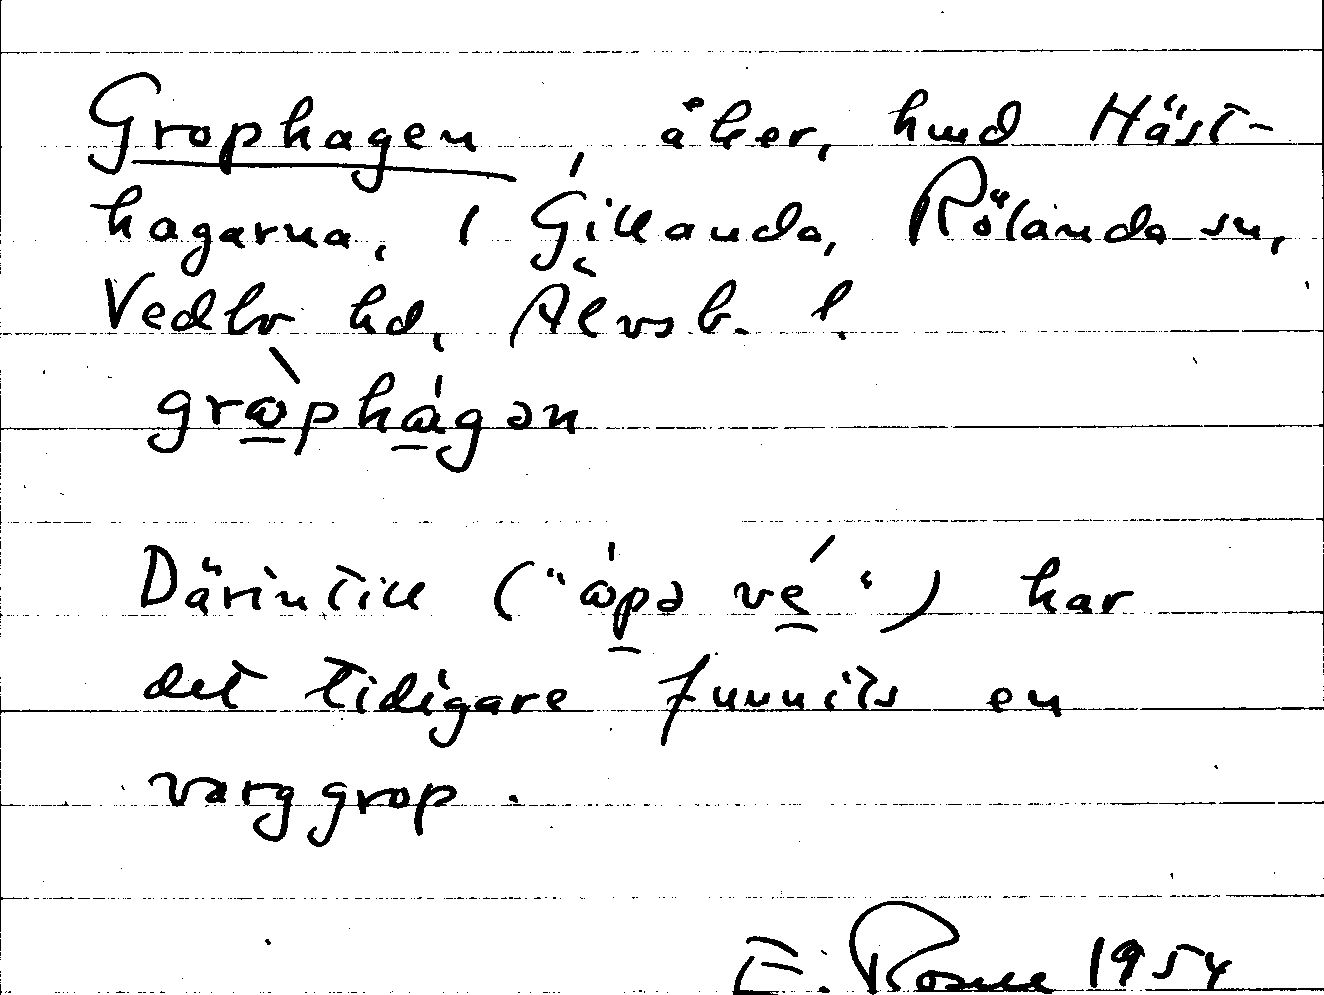 Grophagen, åker, hmd Häst-
hagarna, i Gillanda, Rölanda sn,
Vedbo hd, Älvsb. l.
grɷ̀phágən
Därintill ("ɷ́pə vé") har
det tidigare funnits en
varggrop.
E. Rosell 1954